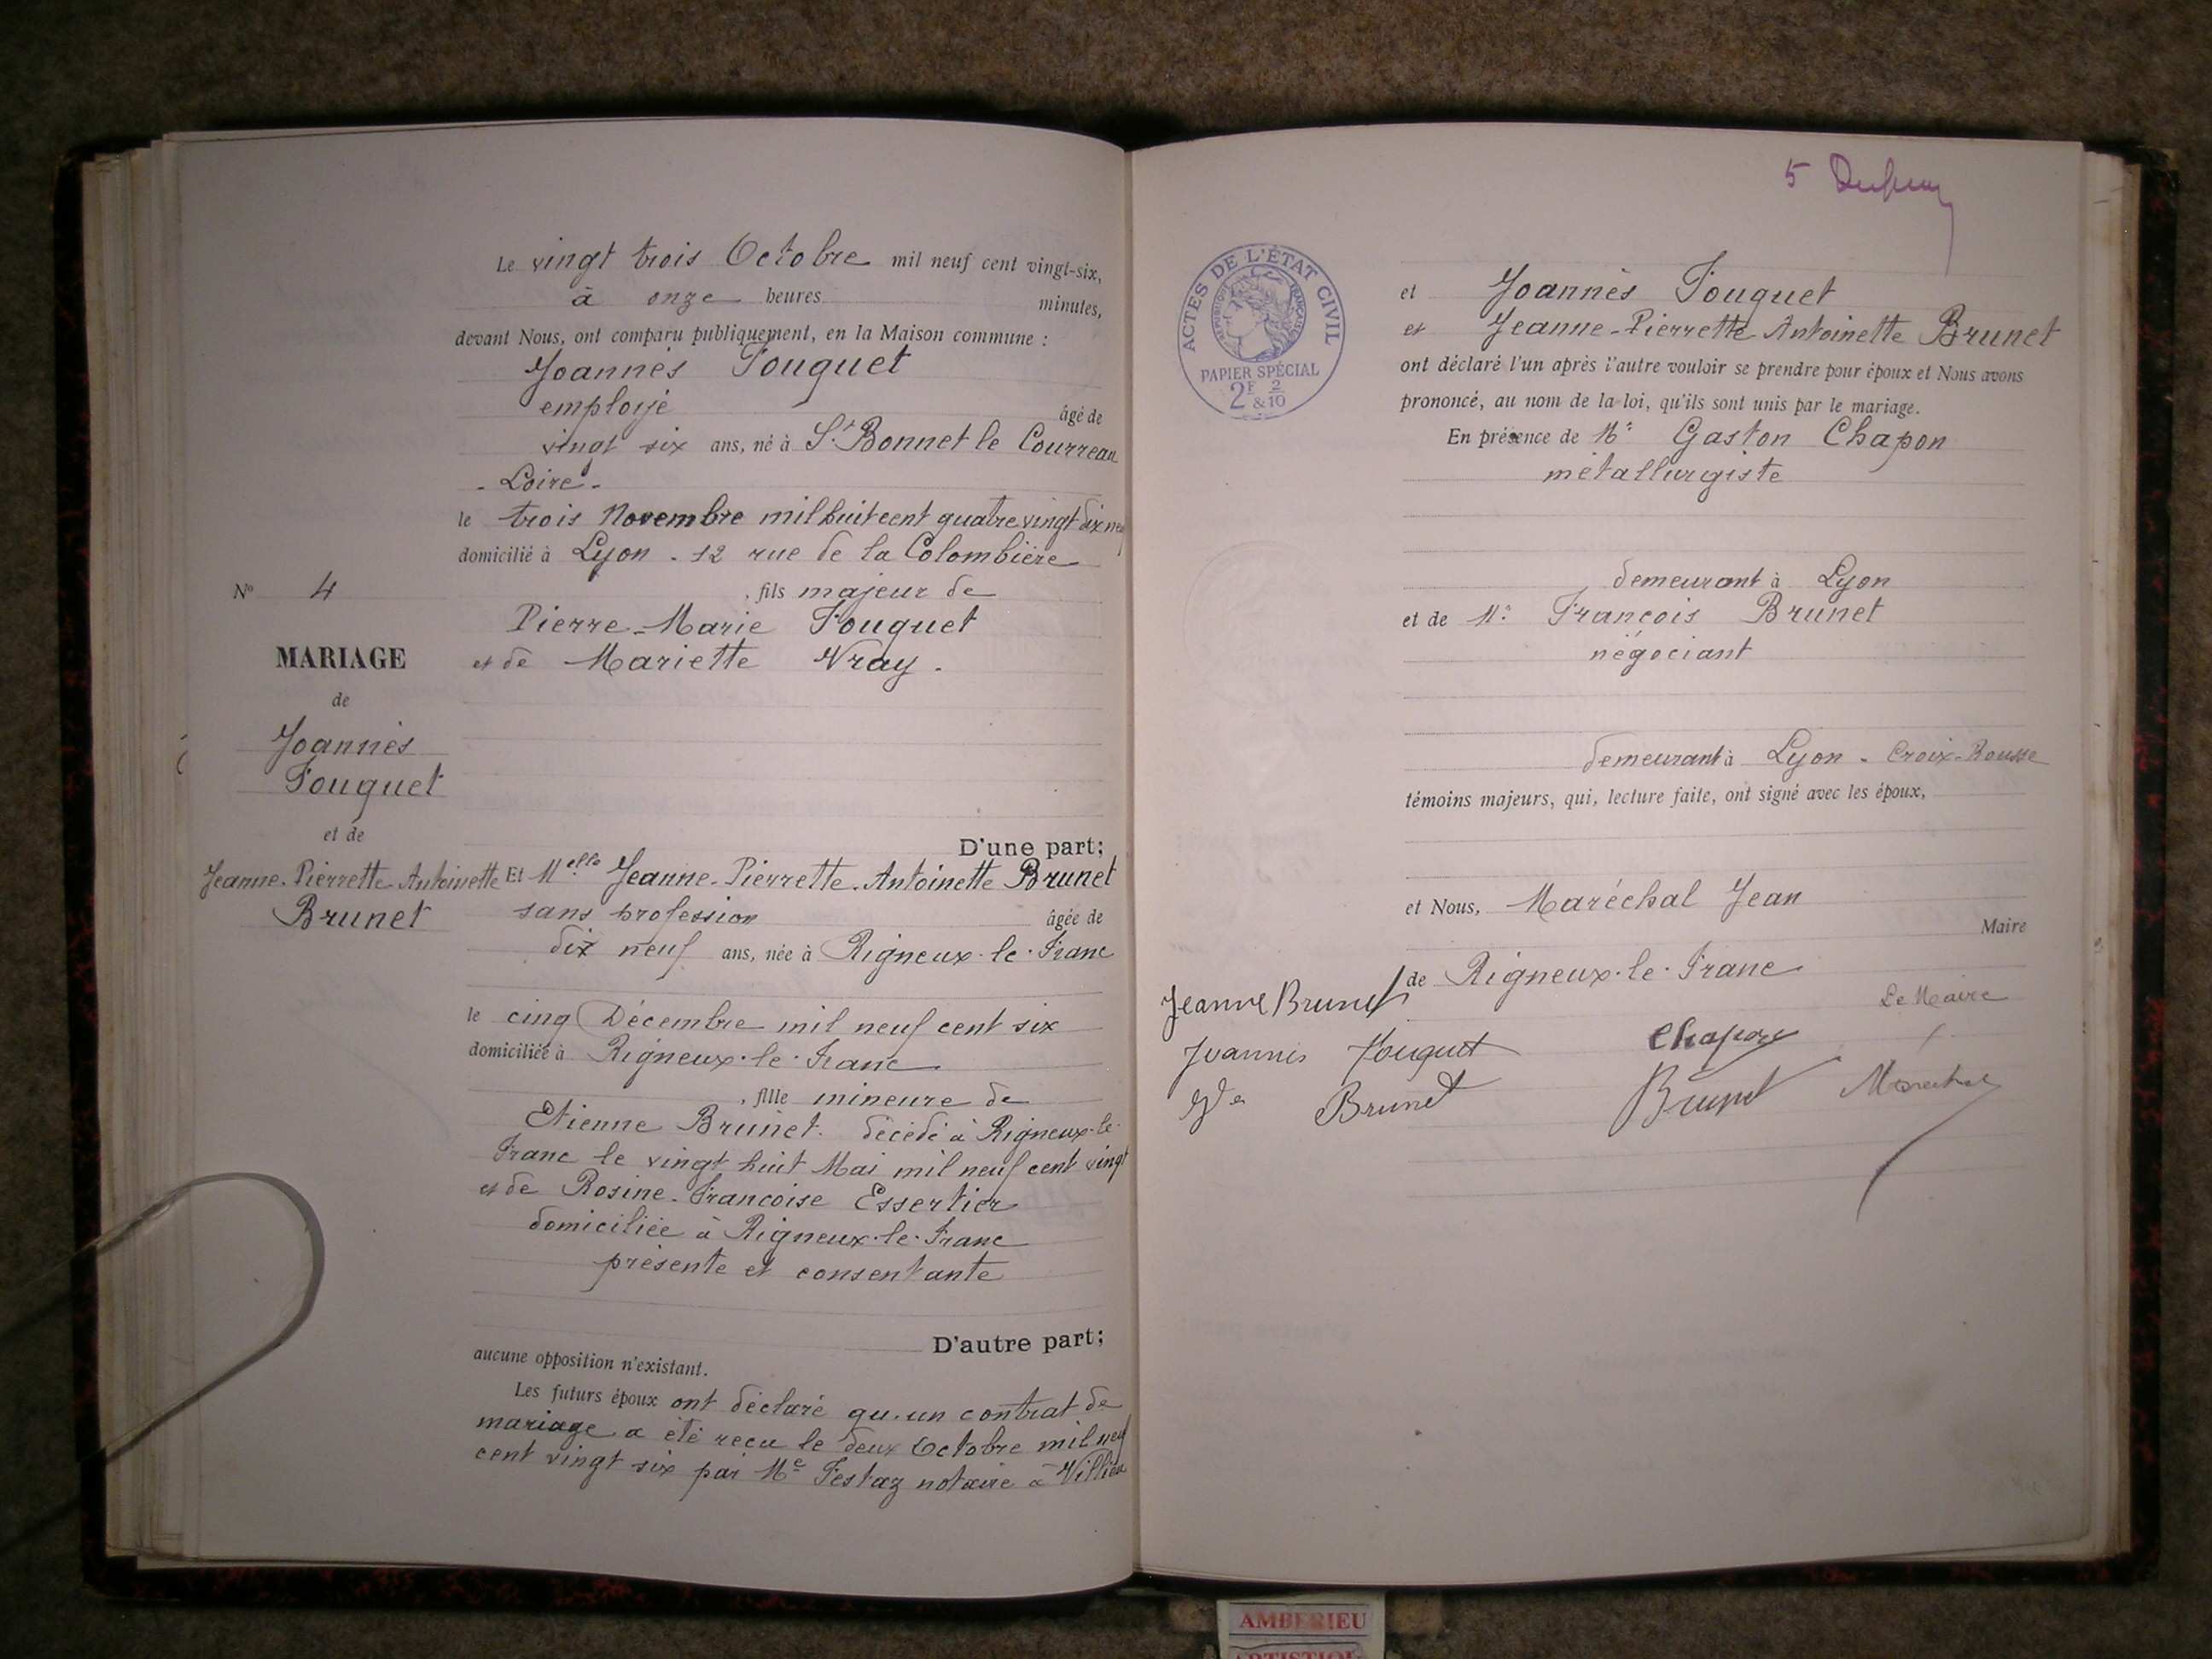 Le vingt trois Octobre mil neuf cent vingt-six,
à onze heures minutes,
devant Nous, ont comparu publiquement, en la Maison commune :
Joannès Fouguet
employé âgé de
vingt six ans, né à St Bonnet le Courreau
- Loire -
le trois Novembre mil huit cent quatre vingt dix neuf
domicilié à Lyon - 12 rue de la Colombière
, fils majeur de
Pierre-Marie Fouguet
et de Mariette Vray.
D'une part;
N° 4
MARIAGE
de
Joannès
Fouguet
et de
Jeanne-Pierrette-Antoinette
Brunet
Et Melle Jeanne-Pierrette-Antoinette Brunet
sans profession âgée de
dix neuf ans, née à Rigneux-le-Franc
le cinq Décembre mil neuf cent six
domiciliée à Rigneux-le-Franc
, fille mineure de
Etienne Brunet. décédé à Rigneux-le-
Franc le vingt huit Mai mil neuf cent vingt
et de Rosine-Francoise Essertier
domiciliée à Rigneux-le-Franc
présente et consentante
D'autre part;
aucune opposition n'existant.
Les futurs époux ont déclaré qu'un contrat de
mariage a été reçu le deux Octobre mil neuf
cent vingt six par Me Festaz notaire à Villieu
5
ACTES DE L'ÉTAT CIVIL
RÉPUBLIQUE FRANÇAISE
PAPIER SPÉCIAL
2F & 2/10
et Joannès Fouguet
et Jeanne-Pierrette Antoinette Brunet
ont déclaré l'un après l'autre vouloir se prendre pour époux et Nous avons
prononcé, au nom de la loi, qu'ils sont unis par le mariage.
En présence de Mr Gaston Chapon
métallurgiste
demeurant à Lyon
et de Mr François Brunet
négociant
demeurant à Lyon - Croix-Rousse
témoins majeurs, qui, lecture faite, ont signé avec les époux,
et Nous, Maréchal Jean
Maire
de Rigneux-le-Franc
Jeanne Brunet
Le Maire
Joannès Fouguet Chapon
Vve Brunet Brunet Maréchal
AMBERIEU